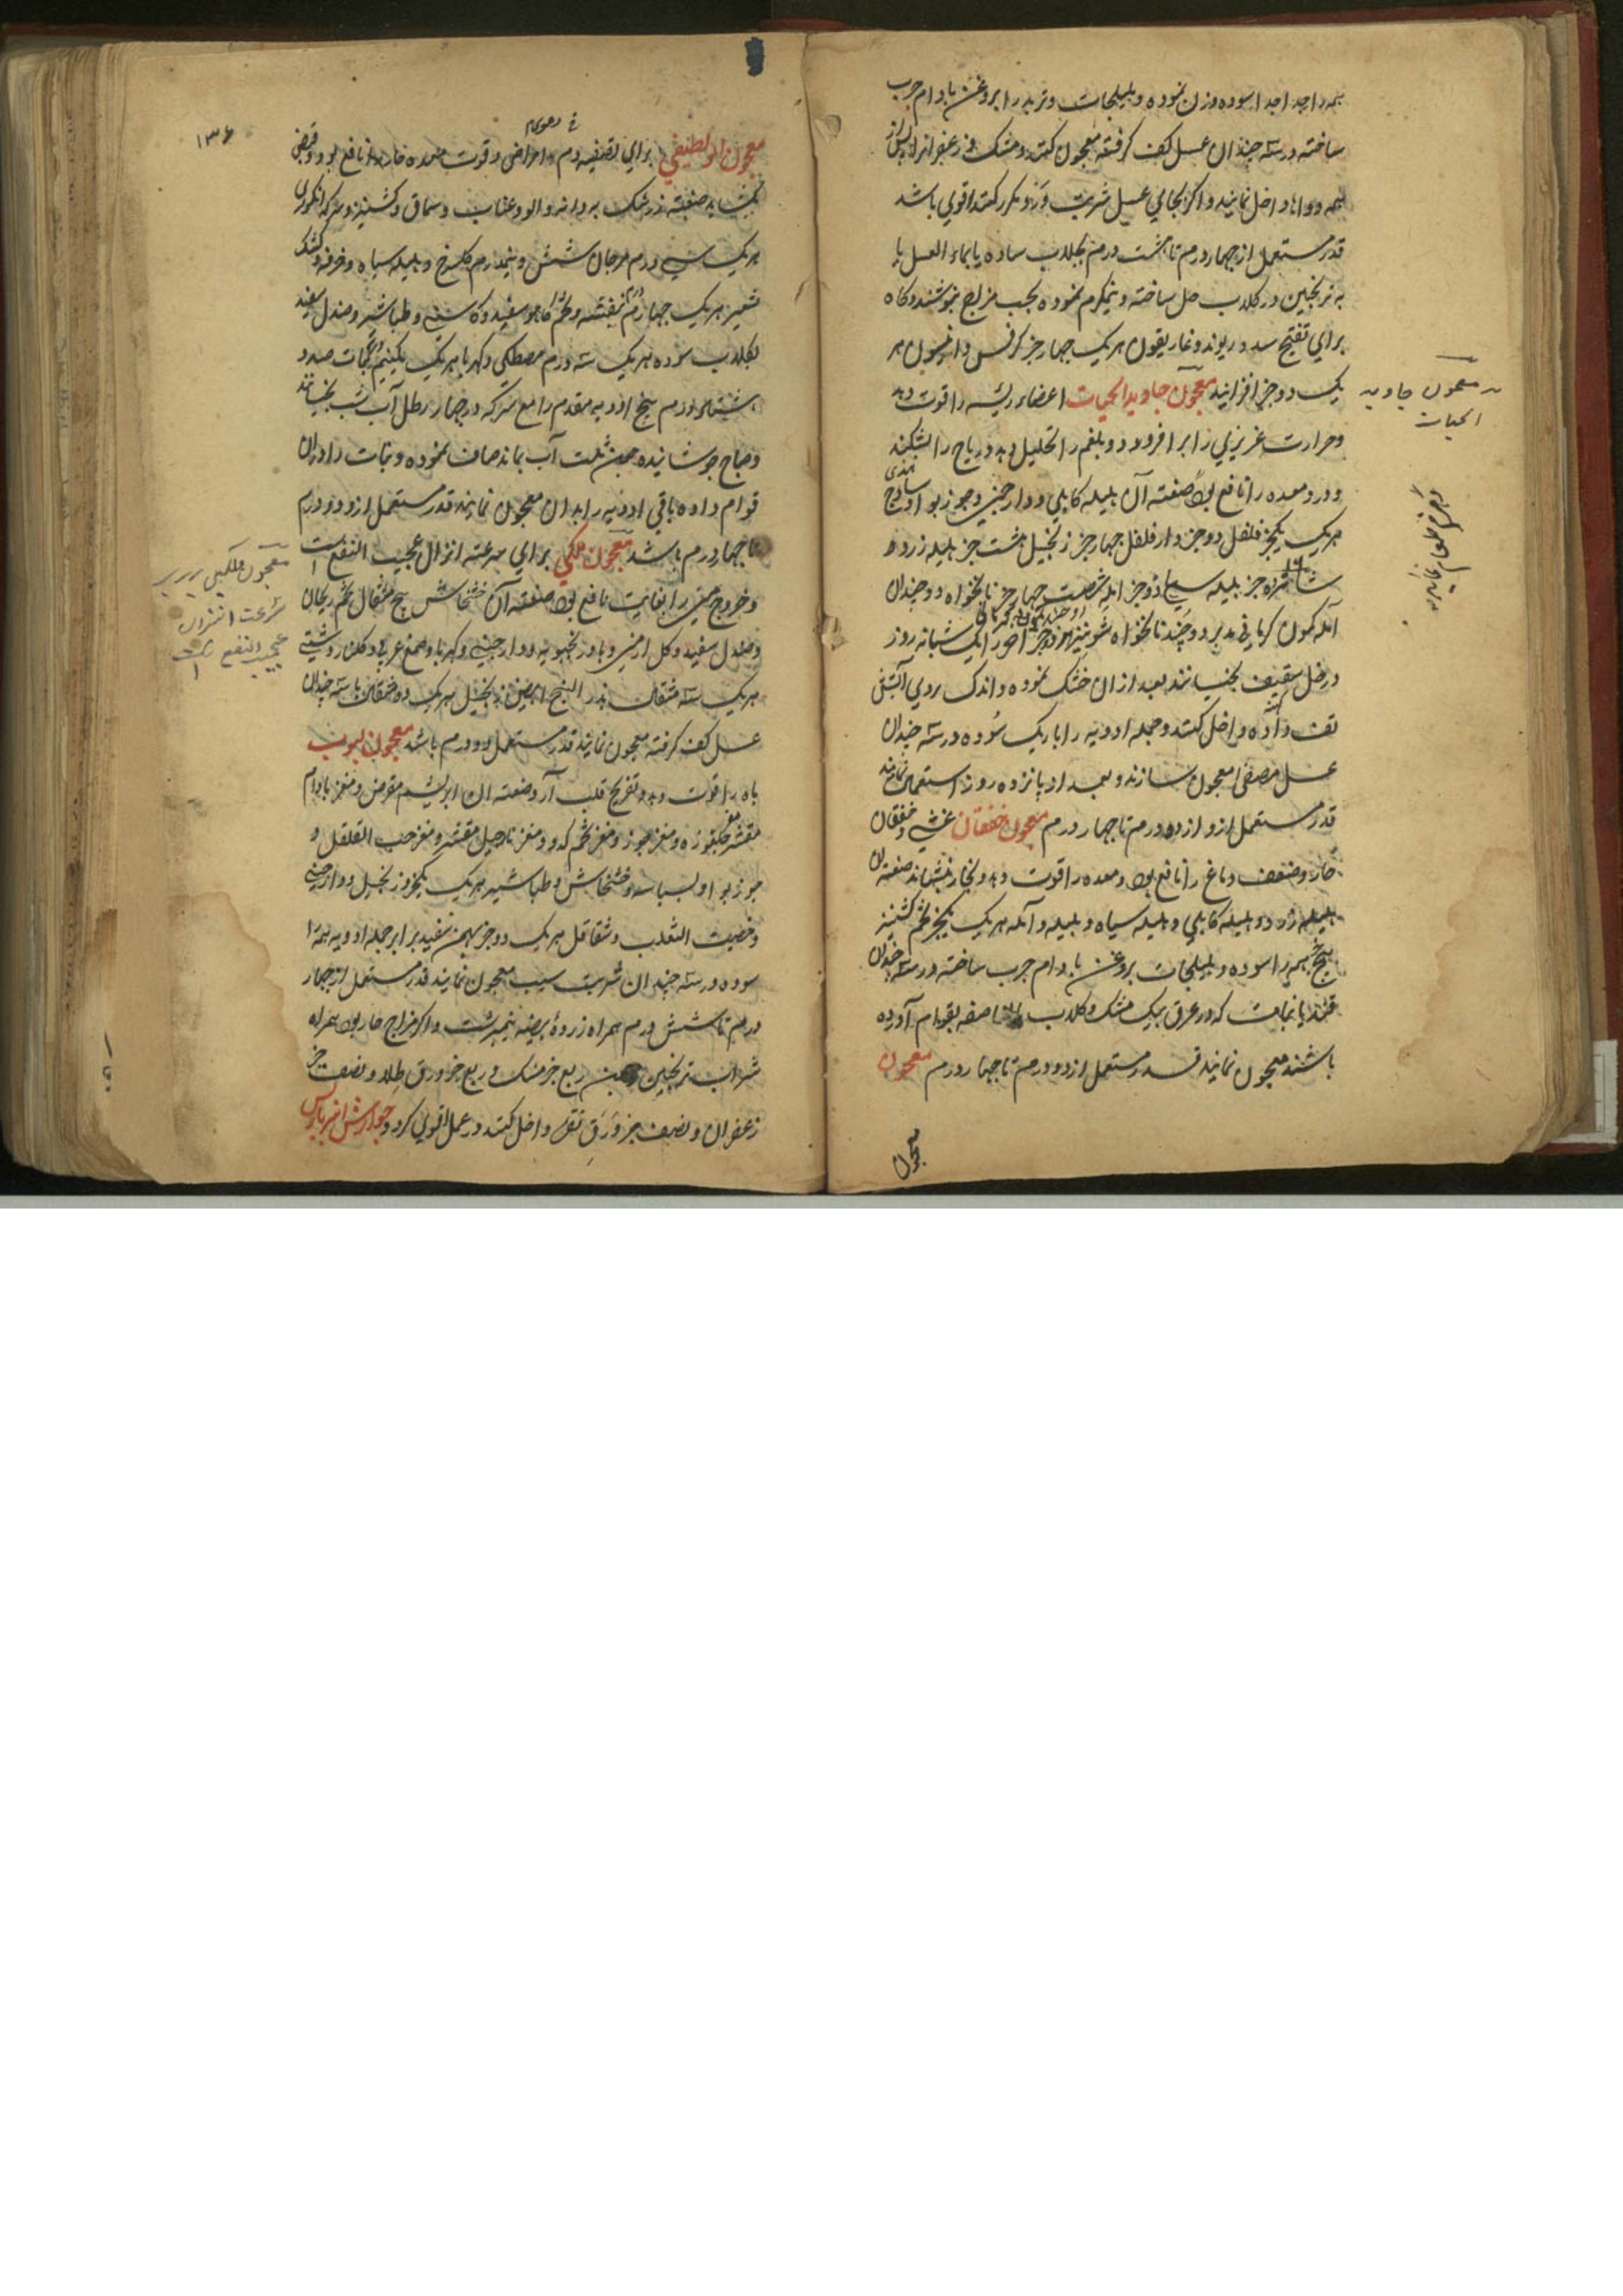 همه را جدا جدا سوده وزن نموده و هلیلجات و تربد را بروغن بادام چرب
ساخته در سه چندان عسل کف گرفته معجون کنند و مشک و زعفران را پس از
همه دواها داخل نمایند و اگر بجای عسل شربت ورد مکرر کنند اقوی باشد
قدر مستعمل از چهار درم تا هشت درم بجلاب ساده یا بماء العسل یا
به ترنجبین در گلاب حل ساخته و نیمگرم نموده بحسب مزاج بنوشند و گاه
برای تفتیح سدد ریوند و غاریقون هر یک چهار جز کرفس و انیسون هر
یک دو جز افزایند معجون جاوید الحیات اعضاء رئیسه را قوت دهد
و حرارت غریزی را برافروزد و بلغم را تحلیل دهد و ریاح را بشکند
و درد معده را نافع بود صنعته آن هلیله کابلی و دارچینی و جوزبوا و ساذج هندی
هر یک یکجز فلفل دو جز دارفلفل چهار جز زنجبیل هشت جز هلیله زرد
شانزده جز هلیله سیاه دو جز آمله شصت چهار جز نانخواه دو چندان
آمله کمون کرمانی مدبر دو چند نانخواه شونیز
در خل ثقیف بخیسانند بعد از آن خشک نموده و اندک روی آتش
تف داده داخل کنند و جمله ادویه را باریک سوده در سه چندان
عسل مصفی معجون سازند و بعد از پانزده روز استعمال نمایند
قدر مستعمل از دو درم تا چهار درم معجون خفقان غشی و خفقان
حار و ضعف دماغ را نافع بود و معده را قوت دهد و بخار بنشاند صنعته آن
هلیله زرد و هلیله کابلی و هلیله سیاه و بلیله و آمله هر یک یکجز تخم کشنیز
پنج جز همه را سوده و هلیلجات بروغن بادام چرب ساخته در سه چندان
قند یا نبات که در عرق بیدمشک و گلاب بقوام آورده
باشند معجون نمایند قدر مستعمل از دو درم تا چهار درم معجون
معجون
معجون جاوید
الحیات
۱۳۶
معجون برای تصفیه دم و امراض دموی و قوت معده حاره نافع بود و قبض
بگشاید صنعته زرشک بیدانه و آلو و عناب و سماق و کشنیز و سرکه انگوری
هر یک سی درم مرجان شش و نیم درم گل سرخ و هلیله سیاه و خرفه و کشک
شعیر هر یک چهار درم بنفشه و تخم کاهو سفید و کاسنی و طباشیر و صندل سفید
بگلاب سوده هر یک سه درم مصطکی و کهربا هر یک یکنیم درم نبات صد و
شصت درم پنج ادویه مقدم را مع سرکه در چهار رطل آب شب بخیسانند
و صباح جوشانیده چون ثلث آب بماند صاف نموده و نبات را در آن
قوام داده باقی ادویه را بدان معجون نمایند قدر مستعمل از دو درم
تا چهار درم باشد معجون ملکی برای سرعته انزال عجیب النفع است
و خروج منی را بغایت نافع بود صنعته آن خشخاش پنج مثقال تخم ریحان
و صندل سفید و گل ارمنی و بادرنجبویه و دارچینی و کهربا و صمغ عربی و گلنار
هر یک سه مثقال بذر البنج ابیض زنجبیل هر یک دو مثقال با سه چندان
عسل کف گرفته معجون نمایند قدر مستعمل دو درم باشد معجون لبوب
باه را قوت دهد و تفریح قلب آرد صنعته آن ابریشم مقرض و مغز بادام
مقشر مغز چلغوزه و مغز جوز و مغز تخم کدو و مغز نارجیل مقشر و مغز حب القلقل و
جوزبوا و بسباسه و خشخاش و طباشیر هر یک یکجز و زنجبیل و دارچینی
و خصیت الثعلب و شقاقل هر یک دو جز بهمن سفید برابر جمله ادویه همه را
سوده در سه چندان شربت سیب معجون نمایند قدر مستعمل از چهار
درم تا شش درم همراه زرده بیضه نیمبرشت و اگر مزاج حار بود همراه
شراب ترنجبین ربع جز مشک و ربع جز ورق طلا و نصف جز
زعفران و نصف جز ورق نقره داخل کنند در عمل اقوی گردد جوارش انبرباریس
معجون ملکی برای
سرعت انزال
عجیب النفع است